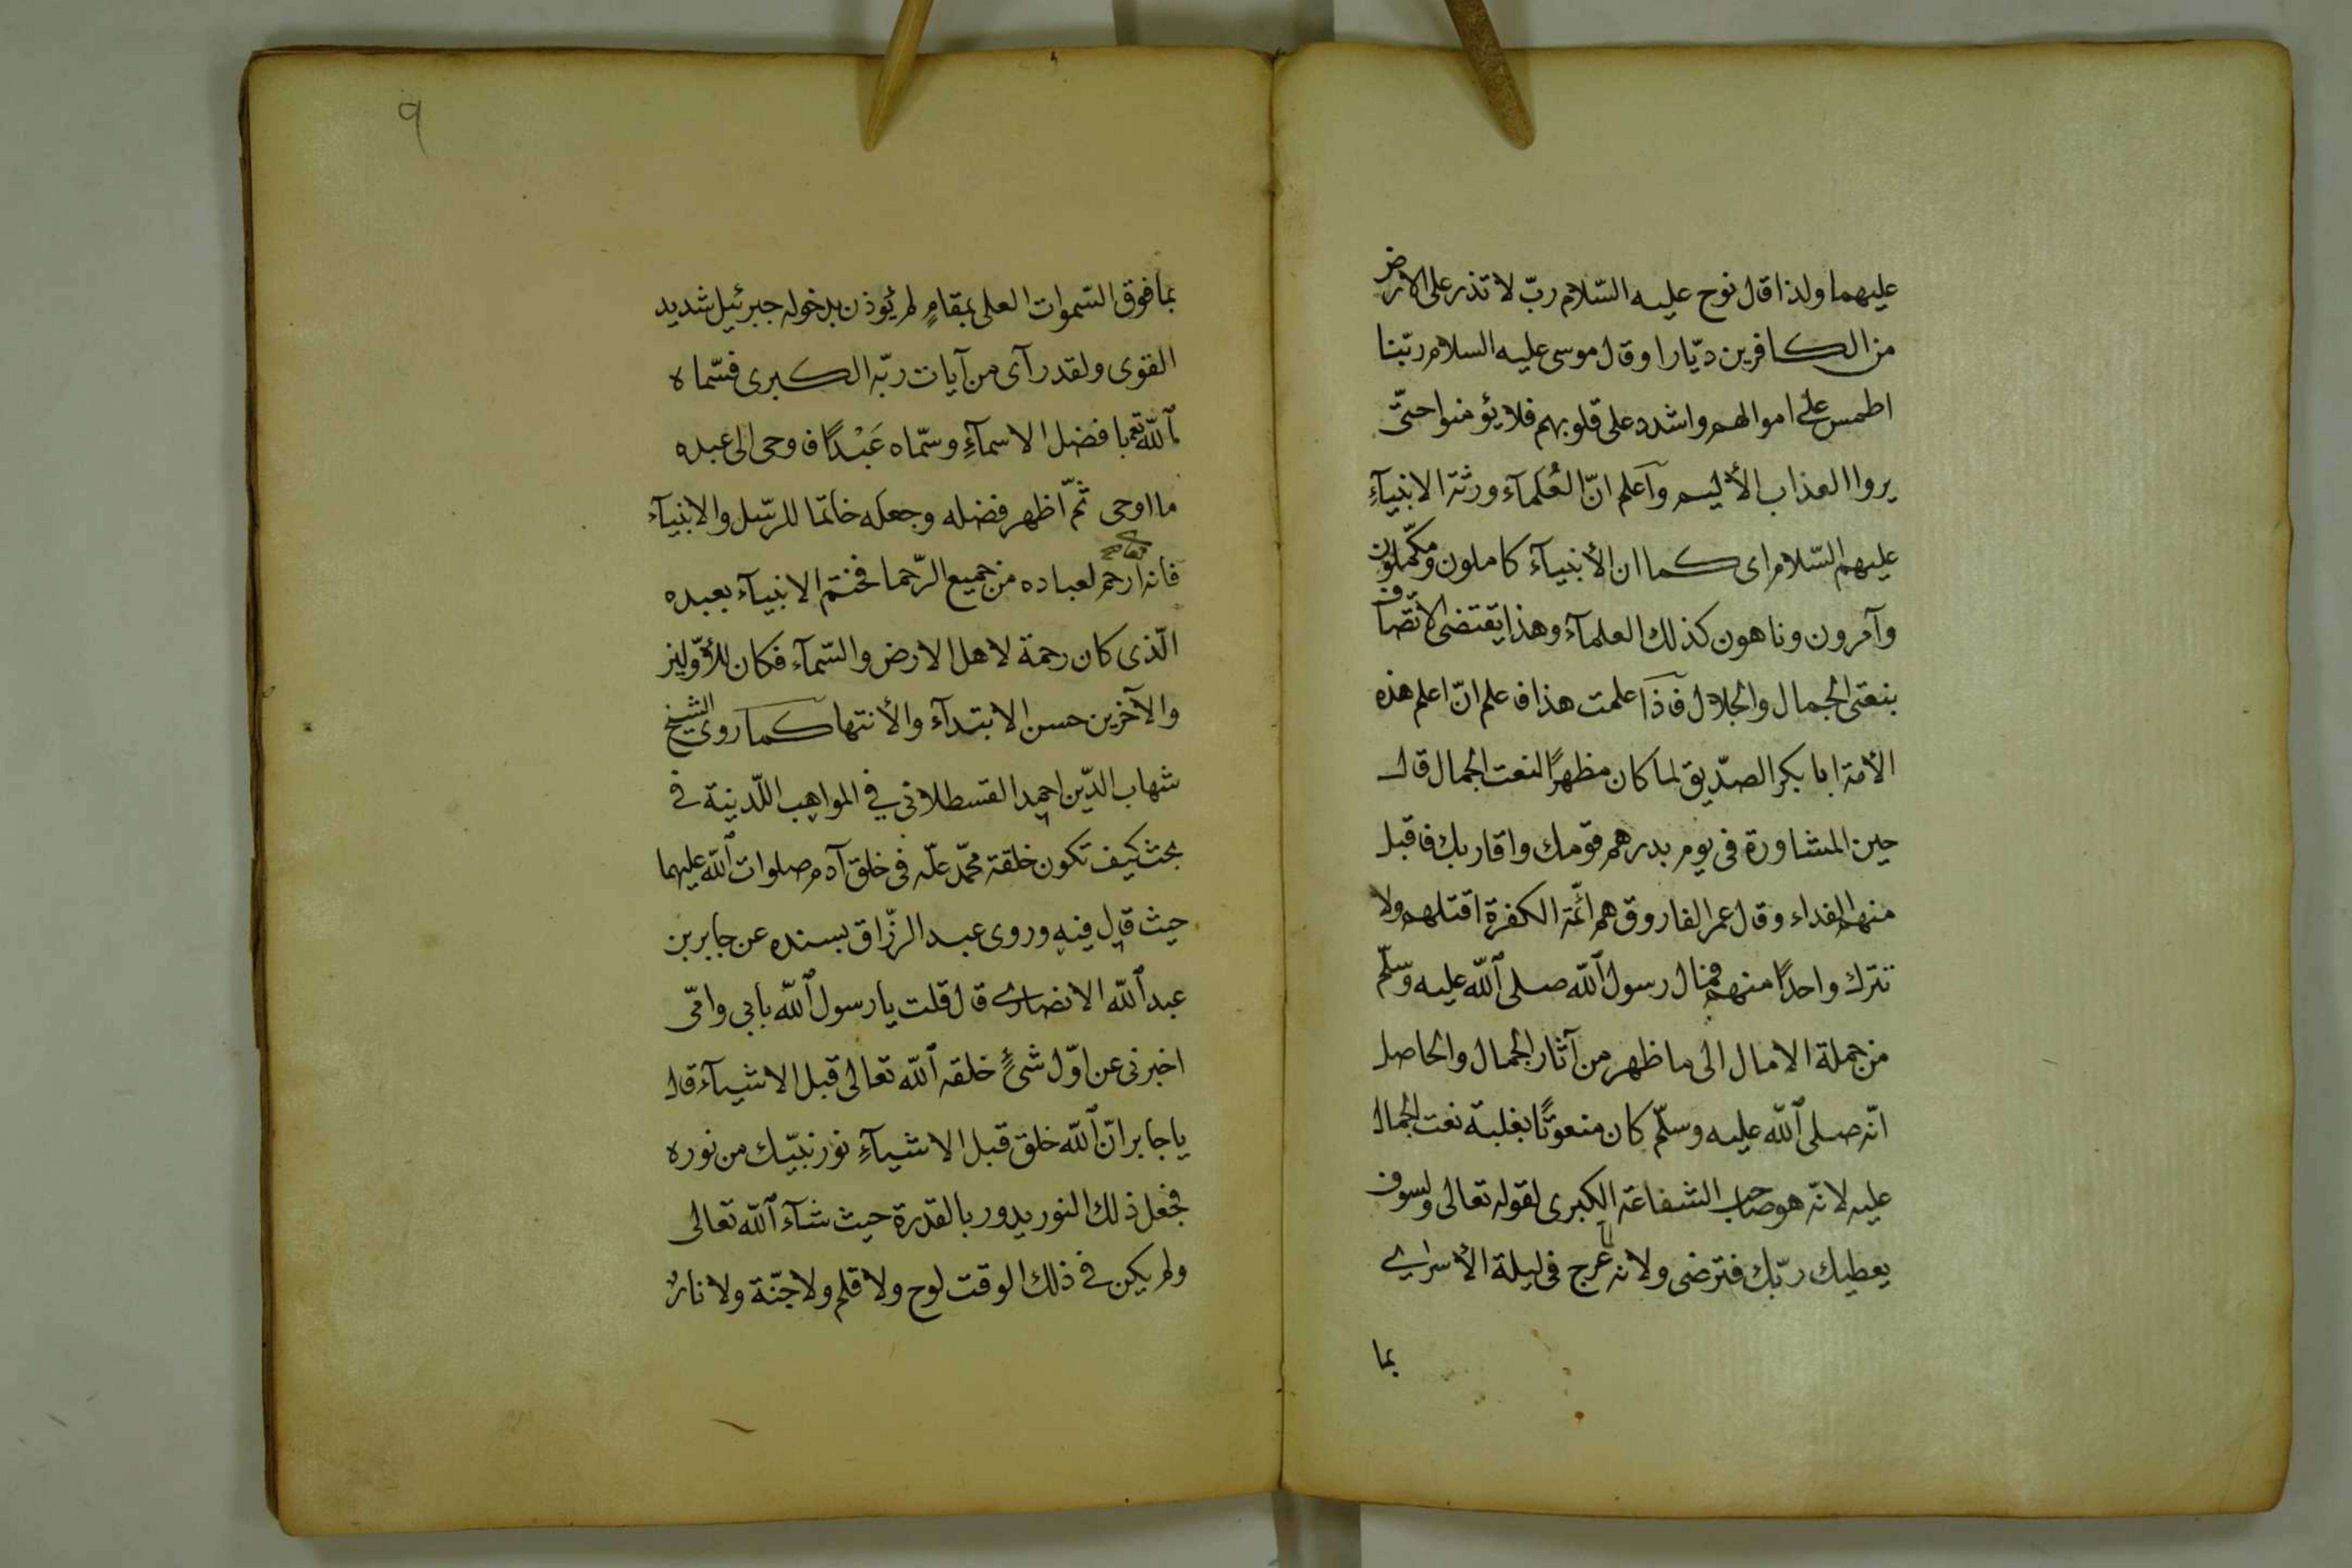 عليهما ولذا قال نوح عليه السّلام ربّ لا تذر على الارض
من الكافرين ديّارا وقال موسى عليه السلام ربّنا
اطمس على اموالهم واشدد على قلوبهم فلا يؤمنوا حتّى
يروا العذاب الأليم وآعلم انّ العُلمآء ورثة الانبيآءِ
عليهم السّلام اى كما ان الأنبيآء كاملون ومكمّلون
وآمرون وناهون كذلك العلمآء وهذا يقتضى الاتّصاف
بنعتى الجمال والجلال فآذا علمت هذا فاعلم انّ اعلم هذه
الأمة ابا بكر الصدّيق لما كان مظهرًا لنعت الجمال قال
حين المشاورة فى يوم بدر هم قومك واقاربك فاقبل
منهم الفداء وقال عمر الفاروق هم ائمّة الكفرة اقتلهم ولا
تترك واحدًا منهم فمال رسول اللّه صلى اللّه عليه وسلّم
من جملة الامال الى ما ظهر من آثار الجمال والحاصل
انّه صلى اللّه عليه وسلّم كان منعوتًا بغلبة نعت الجمال
عليه لانّه هو صاحب الشفاعة الكبرى لقوله تعالى ولسوف
يعطيك ربّك فترضى ولانه عرج فى ليلة الأسراى
بما
٩
بما فوق السّموات العلى بمقامٍ لم يُوذن بدخوله جبرئيل شديد
القوى ولقد رآى من آيات ربّه الكبرى فسّماه
اللّه تع بافضل الاسمآءِ وسمّاه عَبْدًا فاوحى الى عبده
ما اوحى ثمّ اظهر فضله وجعله خاتما للرّسل والانبيآء
فانه تعالى ارحم لعباده من جميع الرّحما فختم الانبيآء بعبده
الّذى كان رحمة لاهل الارض والسّمآء فكان للأوّلين
والآخرين حسن الابتدآء والأنتها كما روى الشيخ
شهاب الدّين احمد القسطلانى في المواهب اللّدنية فى
بحث كيف تكون خلقة محمّد علّه فى خلق آدم صلوات اللّه عليهما
حيث قال فيه وروى عبد الرزّاق بسنده عن جابر بن
عبد اللّه الانصارى قال قلت يا رسول اللّه بابى وامّى
اخبرنى عن اوّل شىءٍ خلقه اللّه تعالى قبل الاشيآء قال
يا جابر انّ اللّه خلق قبل الاشيآءِ نور نبيّك من نوره
فجعل ذلك النور يدور بالقدرة حيث شآء اللّه تعالى
ولم يكن فى ذلك الوقت لوح ولا قلم ولا جنّة ولا نارٌ